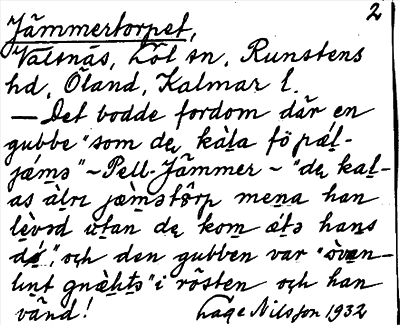 2
Jämmertorpet,
Valsnäs, Löt sn, Runstens
hd, Öland, Kalmar l.
— Det bodde fordom där en
gubbe "som dɛ kàla fö pǽl-
jǽmɔ" ~ Pell-Jämmer ~ "dɛ kal-
as àlrɩ jæ̀mstôrp mena han
lèvɔd utan dɛ kom hans
dö", och den gubben var
"i rösten och han
vänd! Lage Nilsson 1932